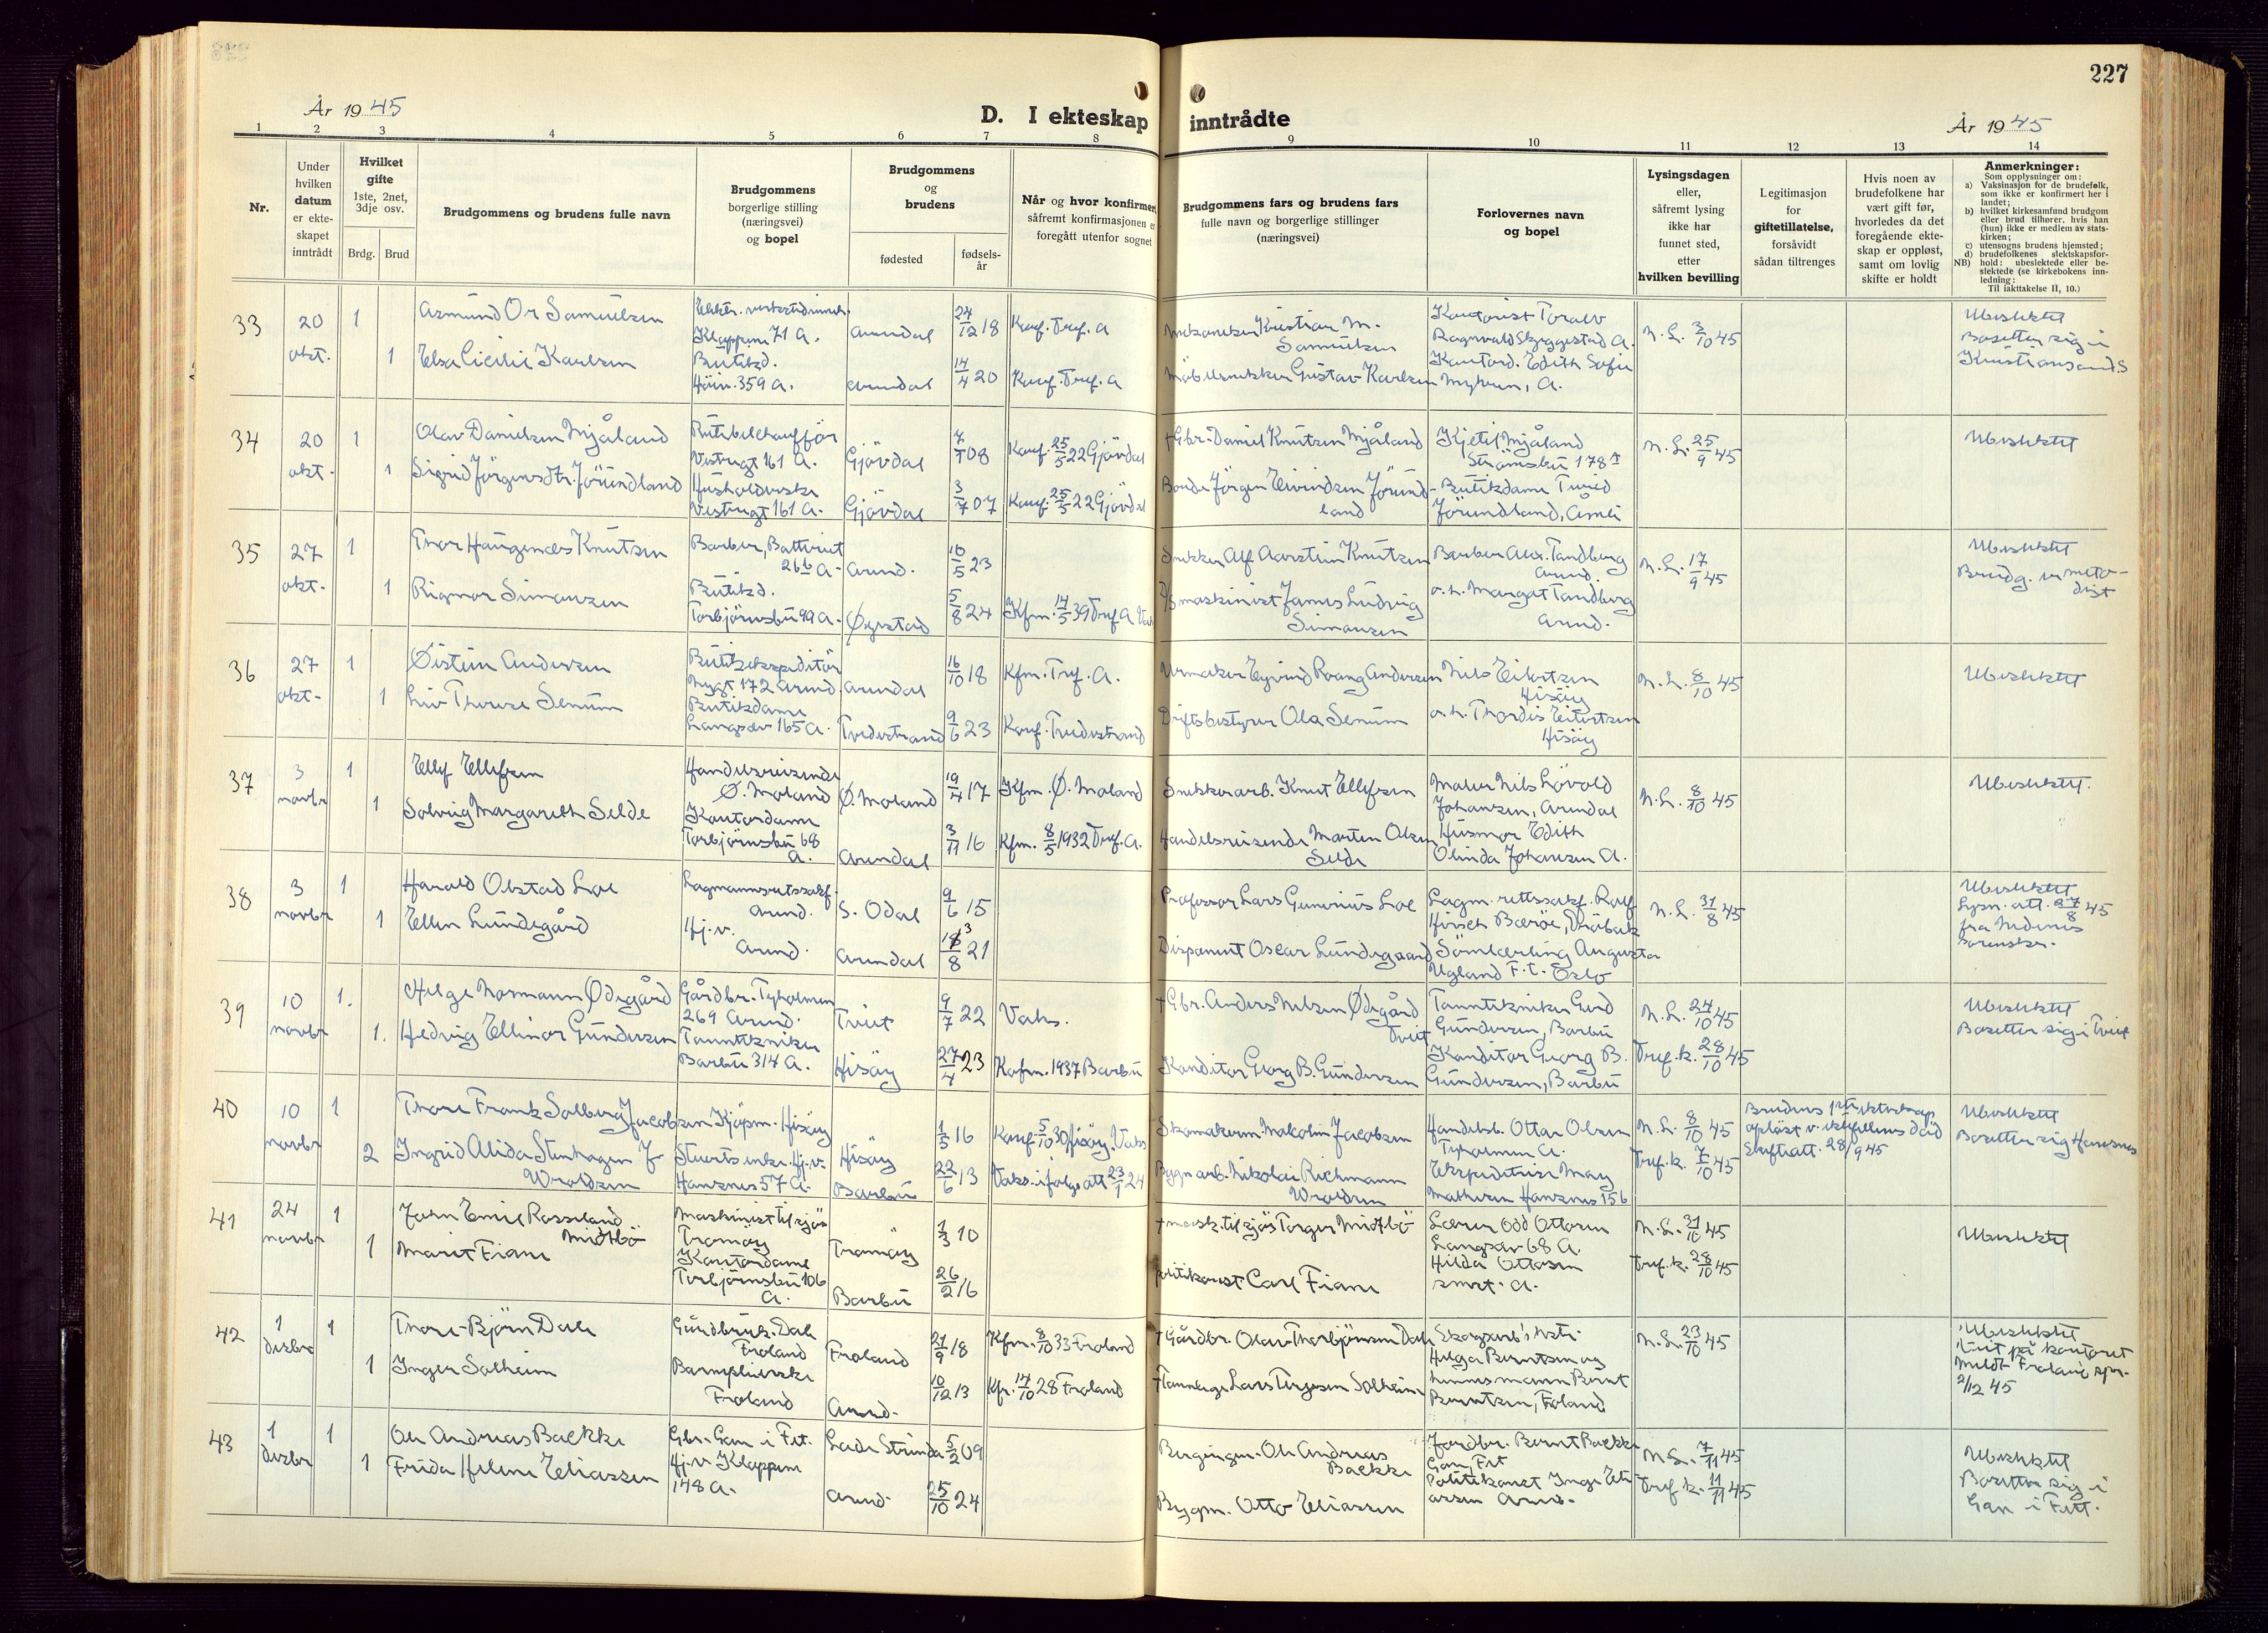 227
År 1945
D. I ekteskap inntrådte
År 1945
1 2 3 4 5 6 7 8 9 10 11 12 13 14
Nr.
Under
hvilken
datum
er ekte-
skapet
inntrådt
Hvilket
gifte
1ste, 2net,
3dje osv.
Brdg. Brud
Brudgommens og brudens fulle navn
Brudgommens
borgerlige stilling
(næringsvei)
og bopel
Brudgommens
og
brudens
fødested
fødsels-
år
Når og hvor konfirmert
såfremt konfirmasjonen er
foregått utenfor sognet
Brudgommens fars og brudens fars
fulle navn og borgerlige stillinger
(næringsvei)
Forlovernes navn
og bopel
Lysingsdagen
eller,
såfremt lysing
ikke har
funnet sted,
etter
hvilken bevilling
Legitimasjon
for
giftetillatelse,
forsåvidt
sådan tiltrenges
Hvis noen av
brudefolkene har
vært gift før,
hvorledes da det
foregående ekte-
skap er oppløst,
samt om lovlig
skifte er holdt
Anmerkninger:
Som opplysninger om:
a) Vaksinasjon for de brudefolk,
som ikke er konfirmert her i
landet;
b) hvilket kirkesamfund brudgom
eller brud tilhører, hvis han
(hun) ikke er medlem av stats-
kirken;
c) utensogns brudens hjemsted;
d) brudefolkenes slektskapsfor-
NB) hold: ubeslektede eller be-
slektede (se kirkebokens inn-
ledning:
Til iakttakelse II, 10.)
33
20
okt.
1
1
Asmund Or Samuelsen
Elsa Cicilie Karlsen
Klappene 71 A.
Butikkd.
Höiv. 359 A.
Arendal
Arendal
24/12 18
14/4 20
Konf. Tref. A
Konf. Tref. A
Mekaniker Kristian M.
Samuelsen
Möbelsnekker Gustav Karlsen
Kontorist Toralv
Ragnvald Skyggestad A.
Kontord. Edith Sofie
Myhren, A.
N. L. 3/10 45
Ubeslektet
Bosetter sig i
Kristiansand S
34
20
okt.
1
1
Olav Danielsen Mjåland
Sigrid Jörgensdtr. Jörundland
Rutebilchaufför
Vestregt 161 A.
Husholderske
Vestregt 161 A.
Gjövdal
Gjövdal
7/1 08
3/7 07
Konf. 25/5 22 Gjövdal
Konf. 25/5 22 Gjövdal
† Gbr. Daniel Knutsen Mjåland
Bonde Jörgen Eivindsen Jörund-
land
Kjetil Mjåland
Strömsbu 178 A
Butikdame Tveid
Jörundland, Åmli
N. L. 25/9 45
Ubeslektet
35
27
okt.
1
1
Thor Haugenæs Knutsen
Rigmor Simonsen
Barber, Batteriet
266 A.
Butikkd.
Torbjörnsbu 99 A.
Arend.
Øyestad
10/5 23
5/8 24
Kfm. 14/5 39 Tref. A
Snekker Alf Aarstein Knutsen
D/S maskinist James Ludvig
Simonsen
Barber Alex. Tandberg
Arend.
o. h. Margot Tandberg
Arend.
N. L. 17/9 45
Ubeslektet
Brudg. er meto-
dist
36
27
okt.
1
1
Øistein Andersen
Liv Therese Senum
Butikekspeditör
Nygt 172 Arend.
Butikdame
Langsæv 165 A.
Arendal
Tvedestrand
16/10 18
9/6 23
Kfm. Tref. A.
Konf. Tvedestrand
Urmaker Eyvind Roang Andersen
Driftsbestyrer Ola Senum
Nils Eilertsen
Hisöy
o. h. Thordis Eilertsen
Hisöy
N. L. 8/10 45
Ubeslektet
37
3
novbr
1
1
Ellef Ellefsen
Solveig Margareth Selde
Handelsreisende
Ø. Moland
Kontordame
Torbjörnsbu 68
A.
Ø. Moland
Arendal
19/4 17
3/11 16
Kfm. Ø. Moland
Kfm. 8/5 1932 Tref. A.
Snekkerarb. Knut Ellefsen
Handelsreisende Morten Olsen
Selde
Maler Nils Lövold
Johansen, Arendal
Husmor Edith
Olinda Johansen A.
N. L. 8/10 45
Ubeslektet.
38
3
novbr
1
1
Harald Olstad Loe
Ellen Lundegård
Lagmannsrettssakf.
Arend.
Hj. v.
Arend.
S. Odal
Arendal
9/6 15
13/8 21
Professor Lars Gunerius Loe
Disponent Oscar Lundegaard
Lagm. rettssakf. Rolf
Hirsch Bærøe, Drøbak
Sömlærling Augusta
Ugland F. t. Oslo
N. L. 31/8 45
Ubeslektet
Lysn. att. 27/8 45
fra Nedenes
Sorenskr.
39
10
novbr
1.
1.
Helge Normann Ødegård
Hedvig Ellinor Gundersen
Gårdbr. Tyholmen
269 Arend.
Tanntekniker
Barbu 314 A.
Tveit
Hisöy
9/7 22
27/4 23
Vaks.
Kofm. 1937 Barbu
† Gbr. Anders Nilsen Ødegård
Tveit
Konditor Georg B. Gundersen
Tanntekniker Gerd
Gundersen, Barbu
Konditor Georg B.
Gundersen, Barbu
N. L. 24/10 45
Tref. k. 28/10 45
Ubeslektet
Bosetter sig i Tveit
40
10
novbr
1
2
Thore Frank Solberg Jacobsen
Ingrid Alida Stenhagen f.
Wroldsen
Kjöpm. Hisöy
Stuerts enke. Hj. v.
Havsnes 57 A.
Hisöy
Barbu
1/5 16
22/6 13
Konf. 5/10 30 Hisöy. Vaks
Vaks. ifölge att 23/1 24
Skomakerm. Malcolm Jacobsen
Bygn. arb. Nikolai Richmann
Wroldsen
Handelsb. Otto Olsen
Tyholmen A.
Ekspeditrise May
Mathisen Havsnes 156
N. L. 8/10 45
Tref. k. 7/10 45
Brudens 1ste ekteskap
oplöst v. ektefellens död
Skifteatt. 28/9 45
Ubeslektet
Bosetter sig Havsnes
41
24
novbr
1
1
John Emil Rosseland
Midtbö
Marit Fiane
Maskinist tilsjös
Tromöy
Kontordame
Torbjörnsbu 106
A.
Tromöy
Barbu
1/3 10
26/2 16
† mask. tilsjös Torger Midtbö
Politikonst Carl Fiane
Lærer Odd Ottosen
Langsæv 68 A.
Hilda Ottosen
smst. A.
N. L. 31/10 45
Tref. k. 28/10 45
Ubeslektet
42
1
desbr
1
1
Thore-Björn Dale
Inger Solheim
Gårdbruk. Dale
Froland
Barnepleierske
Froland
Froland
Arend.
21/9 18
10/12 13
Kfm. 8/10 33 Froland
Kfr. 14/10 28 Froland
† Gårdbr. Olav Thorbjörnsen Dale
† Tannlæge Lars Terjesen Solheim
Helga Berntsen og
Berntsen, Froland
N. L. 23/10 45
Ubeslektet
Viet på kontoret
Meldt Froland spr.
2/12 45
43
1
desbr
1
1
Ole Andreas Bakke
Frida Helene Eliassen
Gbr. Gan i Fet.
Hj. v. Klappene
148 A.
Lade Strinda
Arend.
5/2 09
25/10 24
Bergingen. Ole Andreas
Bakke
Bygm. Otto Eliassen
Jordbr. Bernt Bakke
Gan, Fet
Politikonst Inge Eli-
assen Arend.
N. L. 7/11 45
Tref. k. 11/11 45
Ubeslektet
Bosetter sig i
Gan i Fett.